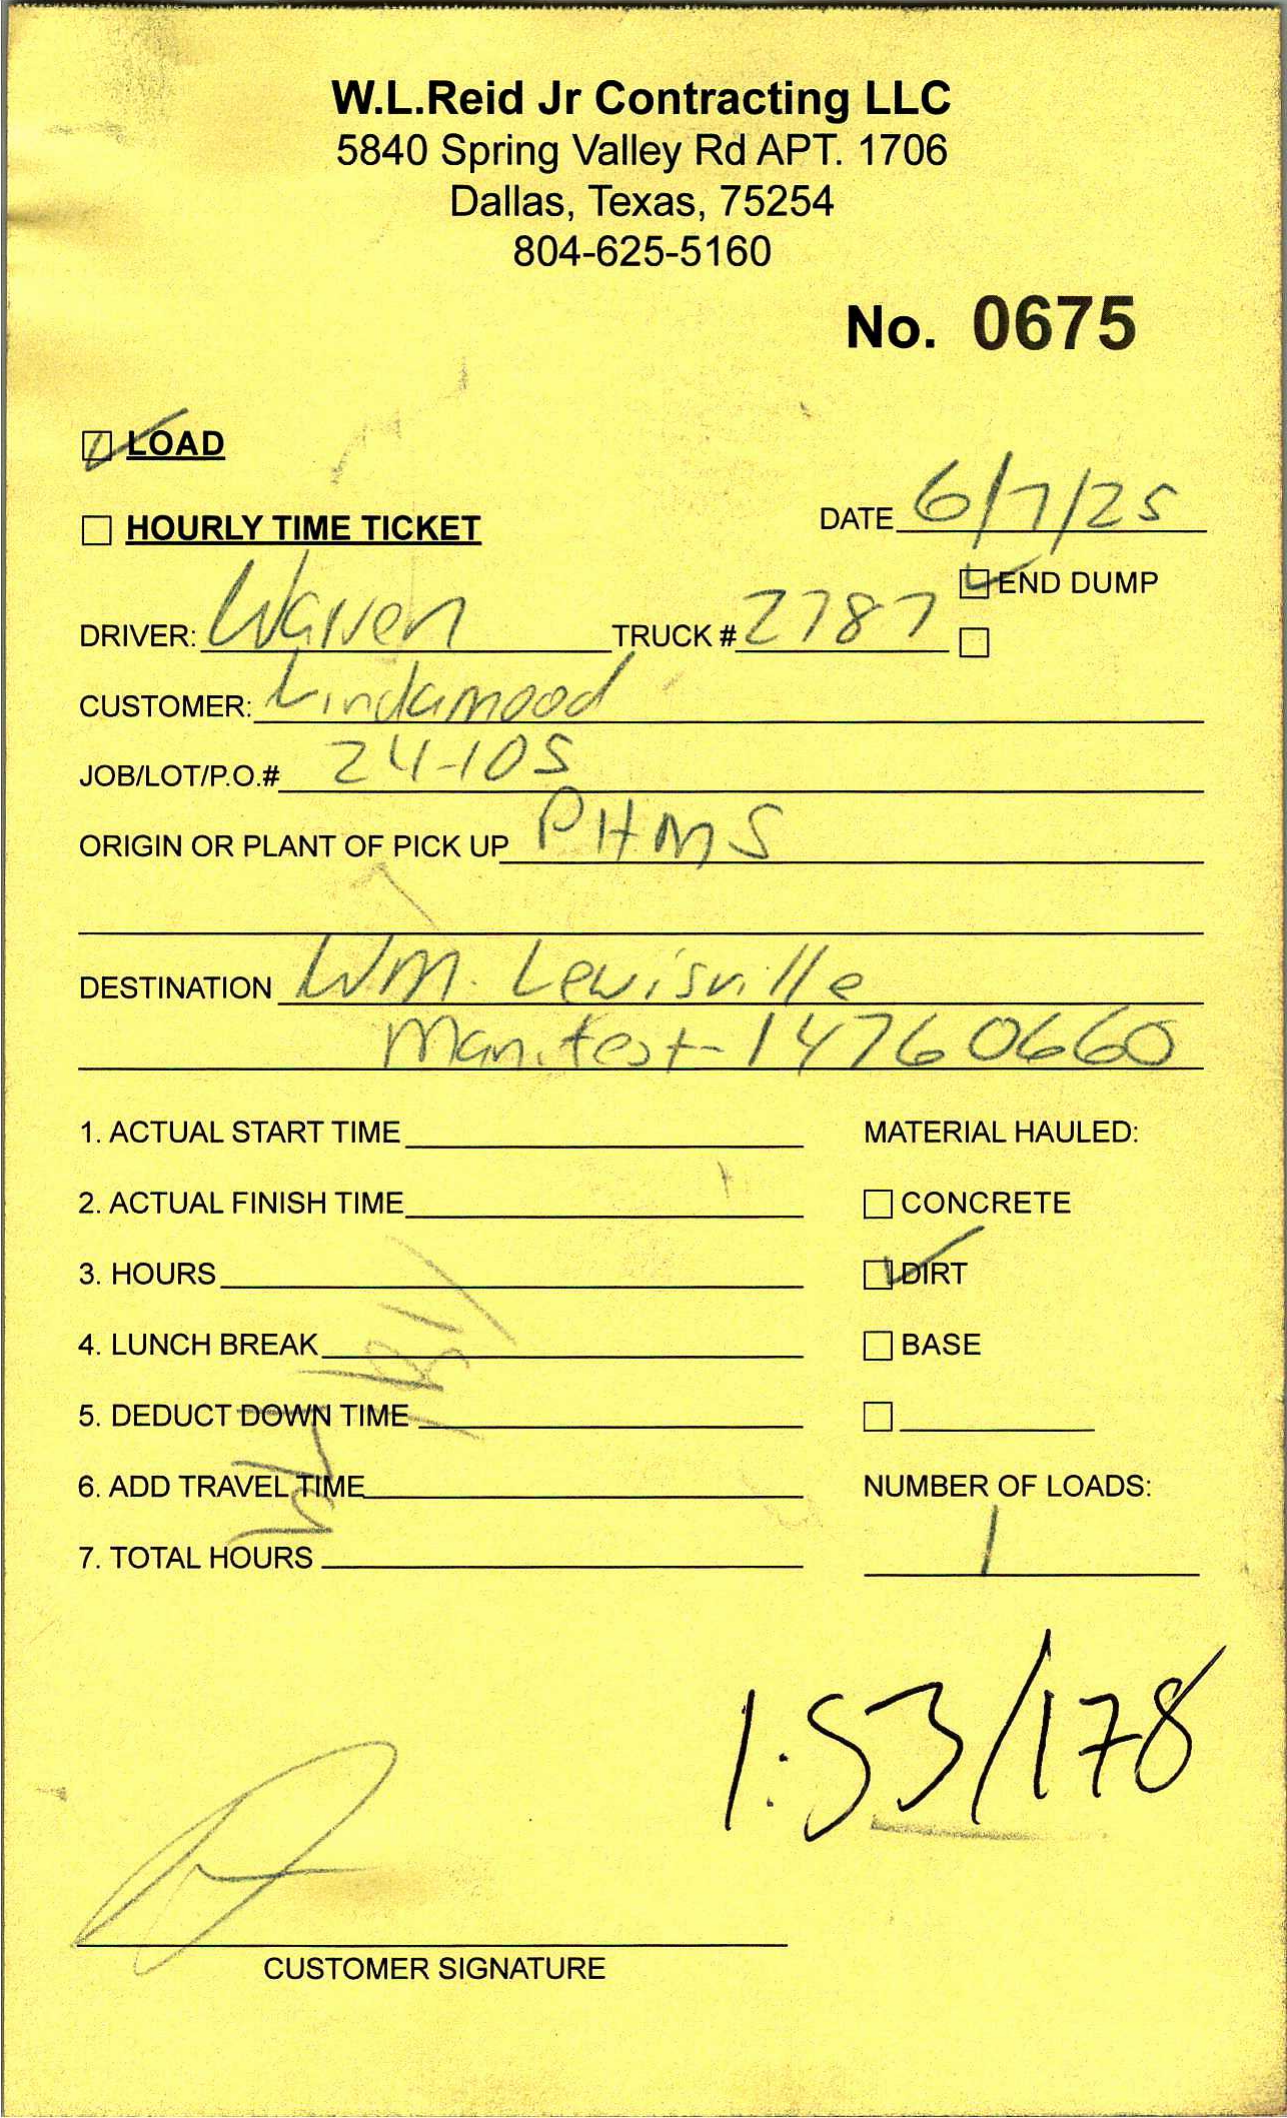 W.L.Reid Jr Contracting LLC
5840 Spring Valley Rd APT. 1706
Dallas, Texas, 75254
804-625-5160
No. 0675
LOAD
HOURLY TIME TICKET
DATE 6/7/25
END DUMP
DRIVER: Warren TRUCK # 2787
CUSTOMER: Lindamood
JOB/LOT/P.O.# 24-105
ORIGIN OR PLANT OF PICK UP PHMS
DESTINATION WM. Lewisville
Manifest-14760660
1. ACTUAL START TIME
MATERIAL HAULED:
2. ACTUAL FINISH TIME
CONCRETE
3. HOURS
DIRT
4. LUNCH BREAK
BASE
5. DEDUCT DOWN TIME
6. ADD TRAVEL TIME
NUMBER OF LOADS:
7. TOTAL HOURS
1
1:53/178
CUSTOMER SIGNATURE